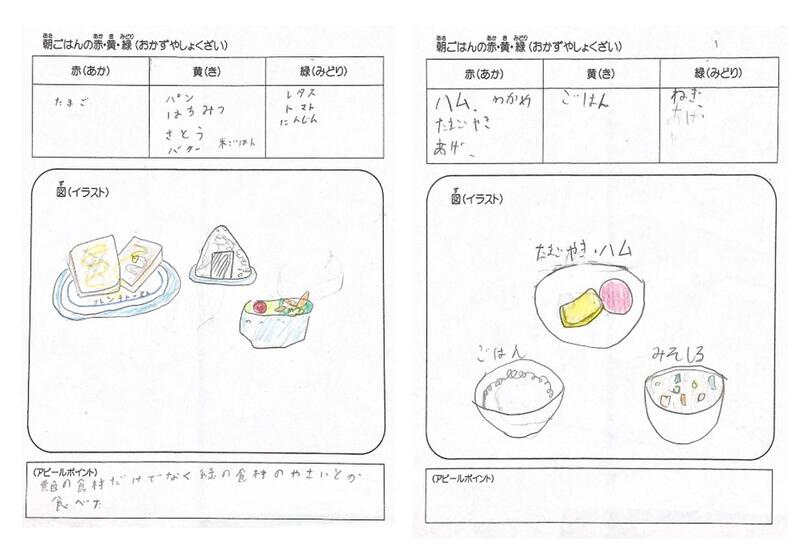 朝ごはんの赤・黄・緑(おかずやしょくざい)
赤(あか) 黄(き) 緑(みどり)
たまご
パン
はちみつ
さとう
バター 米ごはん
レタス
トマト
にんじん
図(イラスト)
フレンチトースト
(アピールポイント)
の食材だけでなく緑の食材のやさいとか
食べた
朝ごはんの赤・黄・緑(おかずやしょくざい)
赤(あか) 黄(き) 緑(みどり)
ハム、わかめ
たまごやき
あげ、
ごはん
ねぎ、
あげ、
図(イラスト)
たまごやき・ハム
ごはん
みそしる
(アピールポイント)